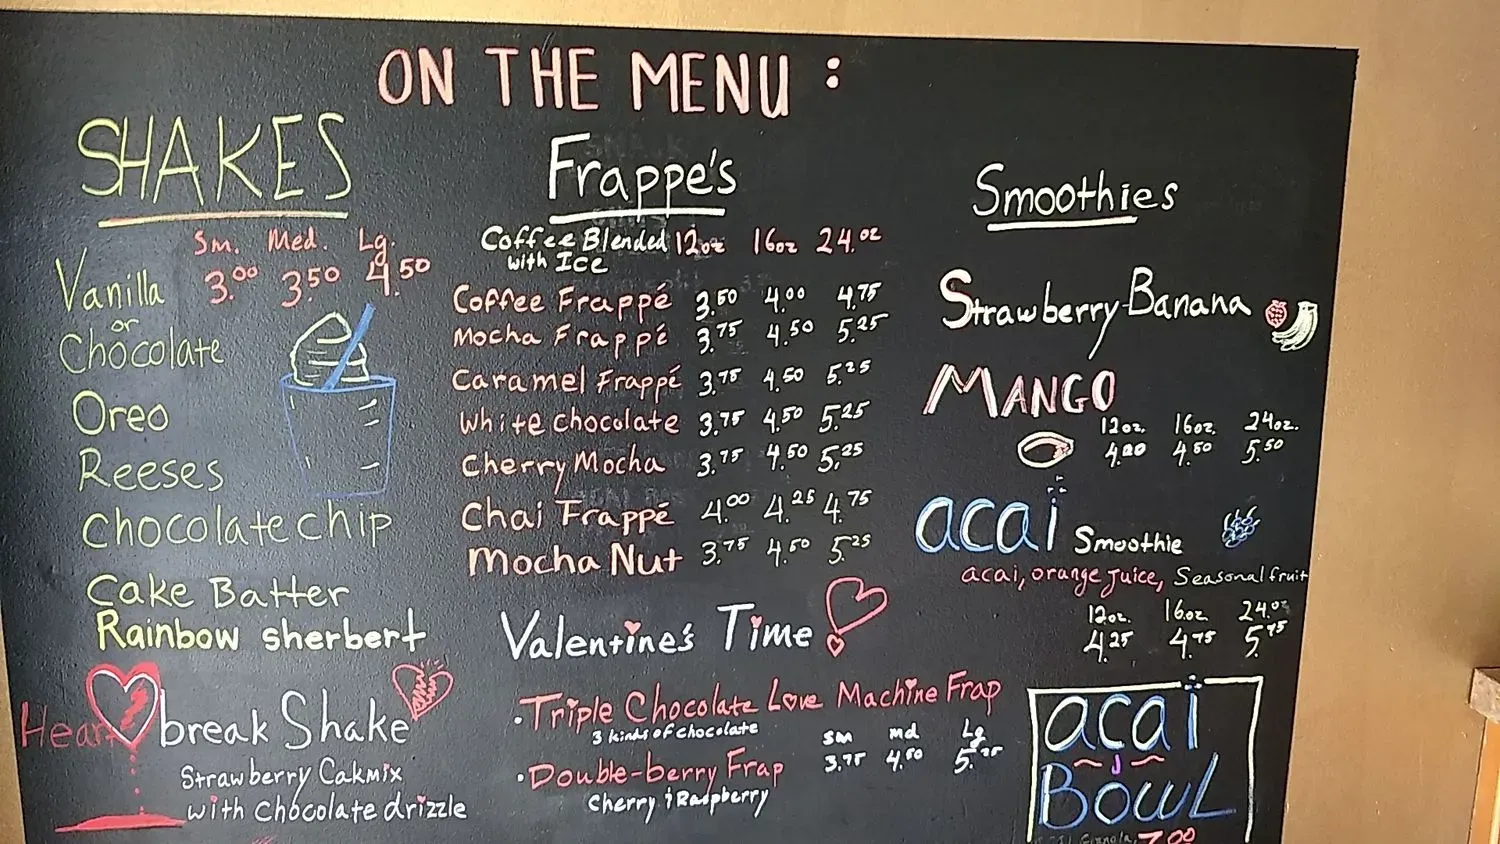 ON THE MENU :
SHAKES
Sm. Med. Lg.
3.00 3.50 4.50
Vanilla
or
Chocolate
Oreo
Reeses
Chocolate chip
Cake Batter
Rainbow sherbert
Heartbreak Shake
Strawberry Cakmix
with Chocolate drizzle
Frappe's
Coffee Blended 12oz 16oz 24.oz
with Ice
Coffee Frappé 3.50 4.00 4.75
Mocha Frappé 3.75 4.50 5.25
Caramel Frappé 3.75 4.50 5.25
White chocolate 3.75 4.50 5.25
Cherry Mocha 3.75 4.50 5.25
Chai Frappé 4.00 4.25 4.75
Mocha Nut 3.75 4.50 5.25
Valentine's Time
• Triple Chocolate Love Machine Frap
3 kinds of chocolate
sm md Lg
3.75 4.50 5.25
• Double-berry Frap
Cherry & Raspberry
Smoothies
Strawberry-Banana
MANGO
12oz. 16oz. 24oz.
4.00 4.50 5.50
acai Smoothie
acai, orange juice, Seasonal fruit
12oz. 16.oz 24.oz
4.25 4.75 5.75
acai
BOWL
7.00